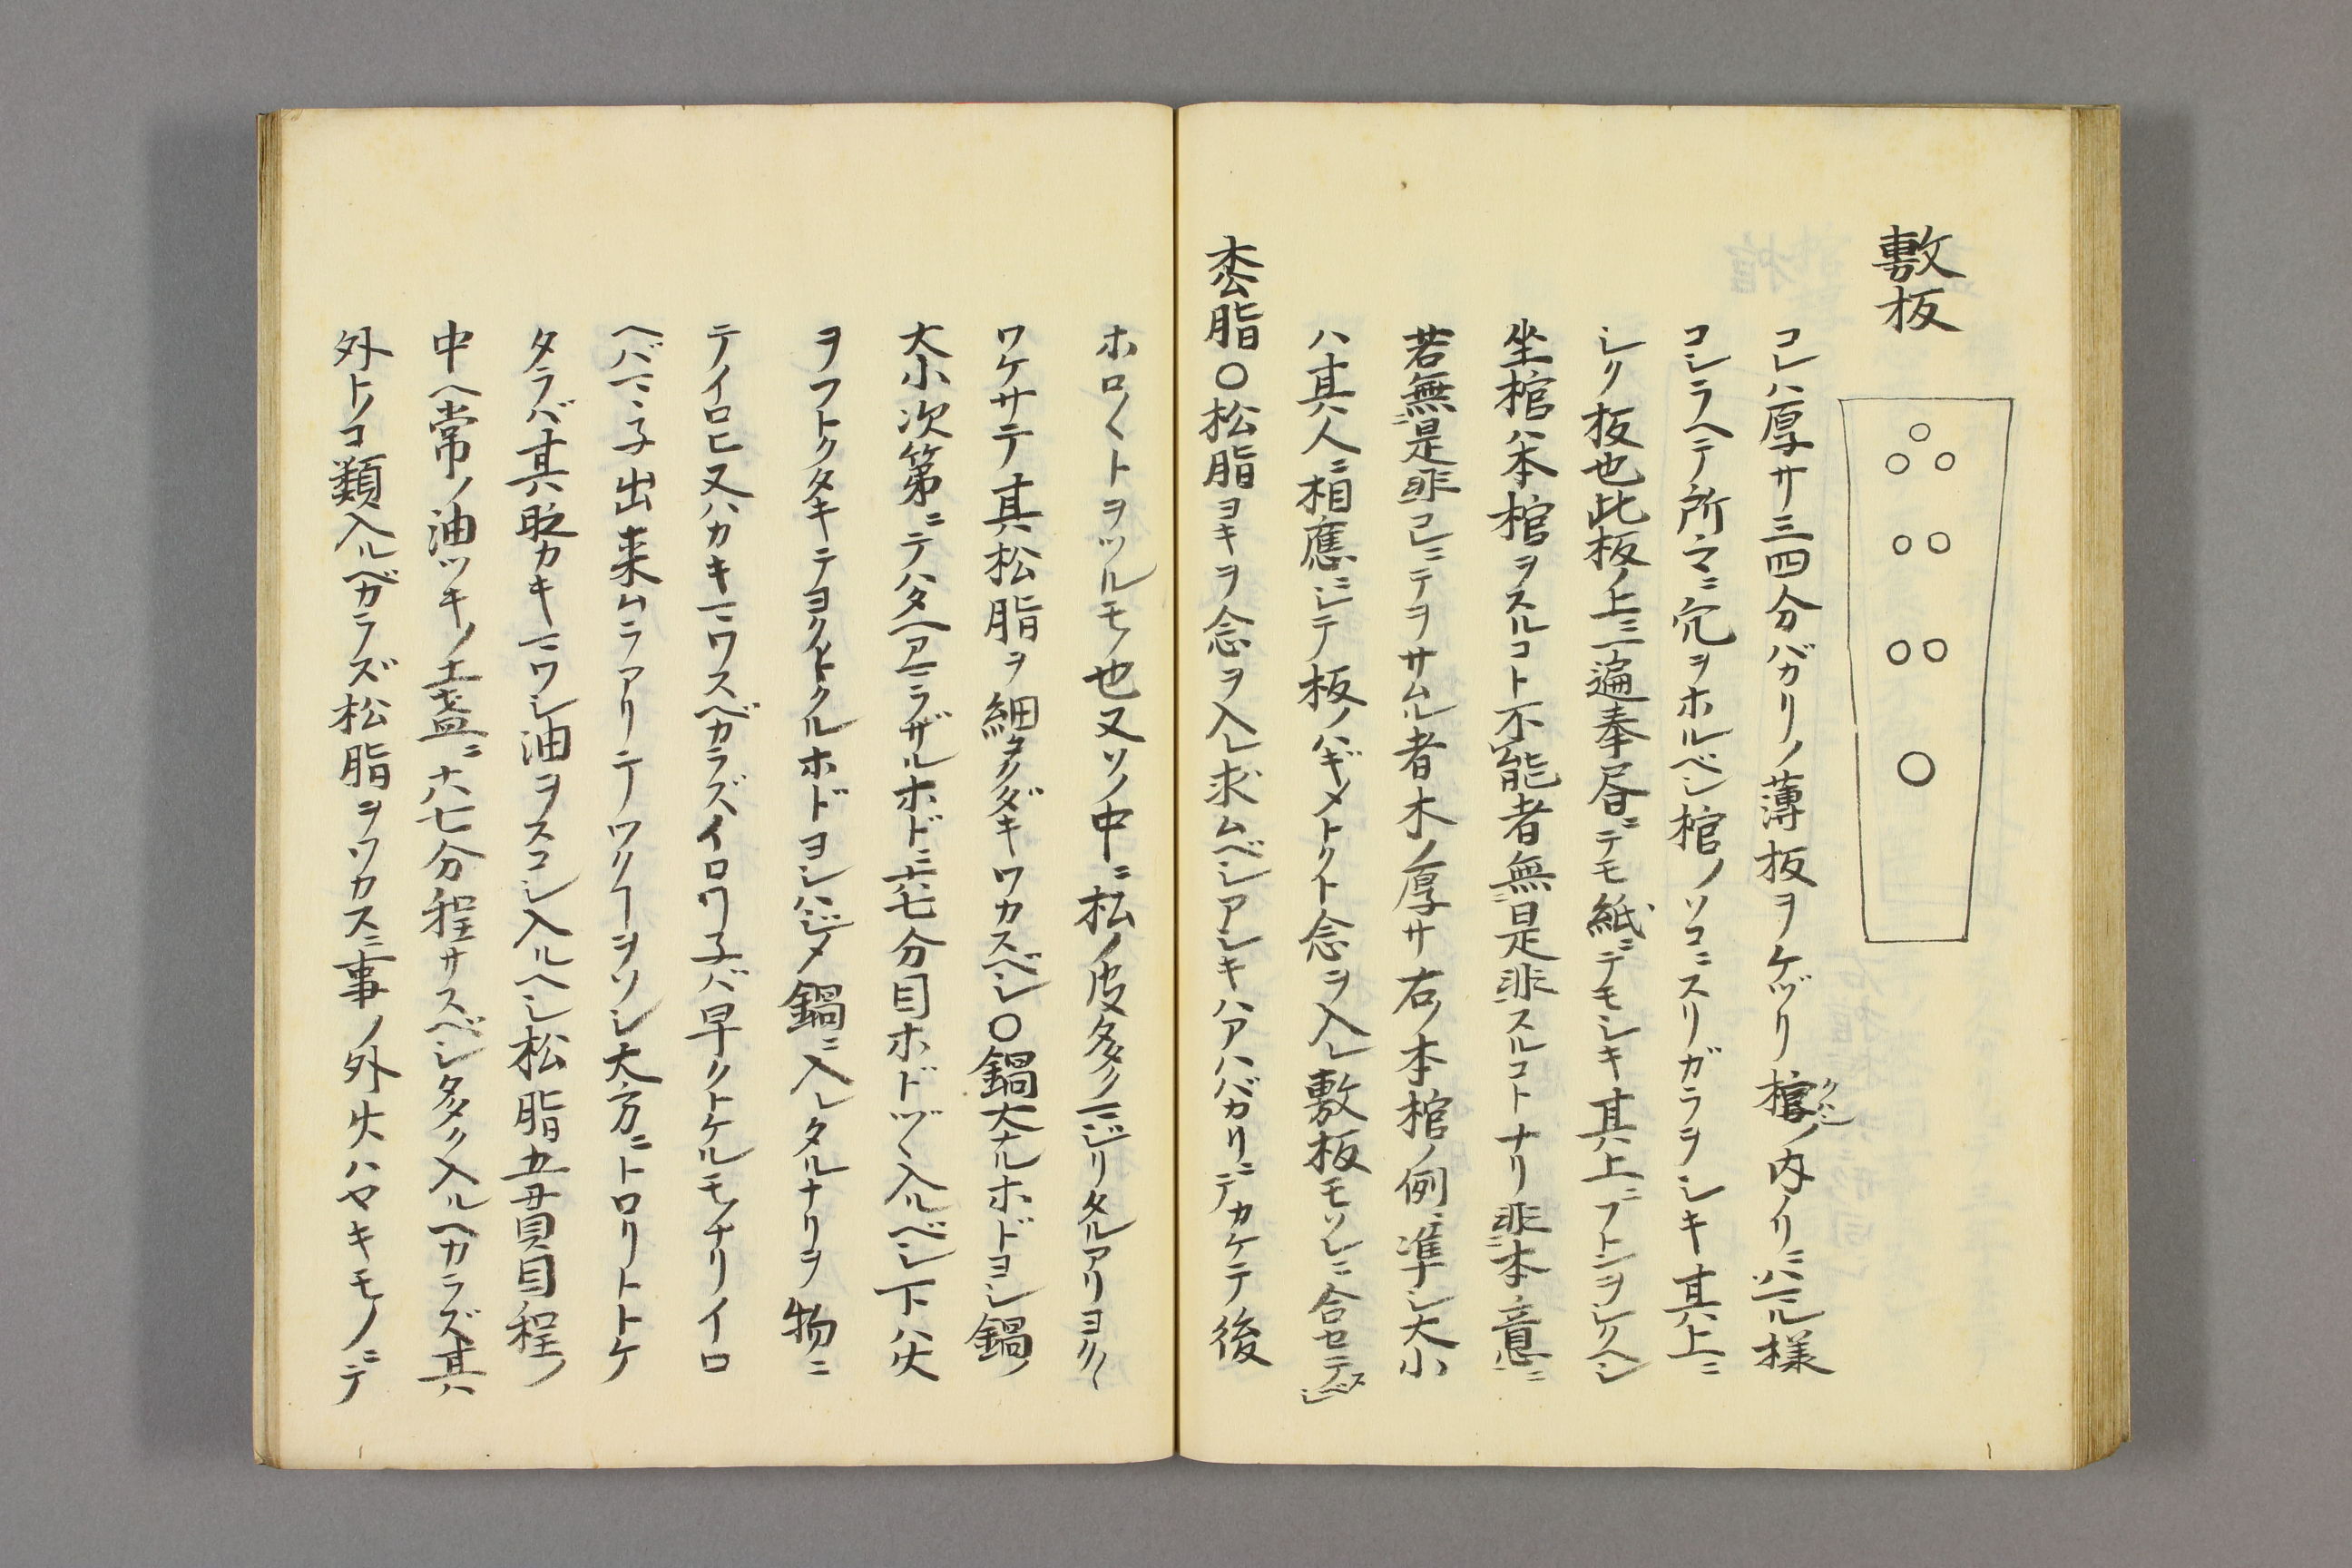 敷板
コレハ厚サ三四分バガリノ薄板ヲケヅリ棺ノ内ノリニハマル様
コシラヘテ所々ニ穴ヲホルベシ棺ノソコニスリガラヲシキ其上ニ
シク板也此板ノ上ニ一遍奉㫺ニデモ紙ニデモシキ其上ニフトンヲシクヘシ
坐棺ハ本棺ヲスルコト不能者無是非スルコトナリ非本意ニ
若無是非コレニテヲサムル者木ノ厚サ右ノ本棺ノ例ニ準シ大小
ハ其人ニ相應ニシテ板ノハギメトクト念ヲ入レ敷板モソレニ合セテスベシ
枩脂〇松脂ヨキヲ念ヲ入レ求ムベシアシキハアハバカリニデカケテ後
ホロ〳〵トヲツルモノ也又ソノ中ニ松ノ皮多クマジリタルアリヨク〳〵
ワケサテ其松脂ヲ細クタダキワカスベシ〇鍋大ナルホドヨシ鍋ノ
大小次第ニテハタヘアマラザルホドニ六七分目ホドヅヽ入ルベシ下ハ火
ヲフトクタキテヨクトクルホドヨシハジメ鍋ニ入レタルナリヲ物ニ
テイロヒ又ハカキマワスベガラズイロワ子バ早クトケルモノナリイロ
ヘバマヽ子出来ムラアリテワクヿヲソシ大方ニトロリトトケ
タラバ其取カキマワシ油ヲスコシ入ルヘシ松脂五貫目程ノ
中ヘ常ノ油ツキノ土盞ニ六七分程サスベシ多ク入ルヘカラズ其
外トノコ類入ルベガラズ松脂ヲワカスニ事ノ外火ハヤキモノニテ